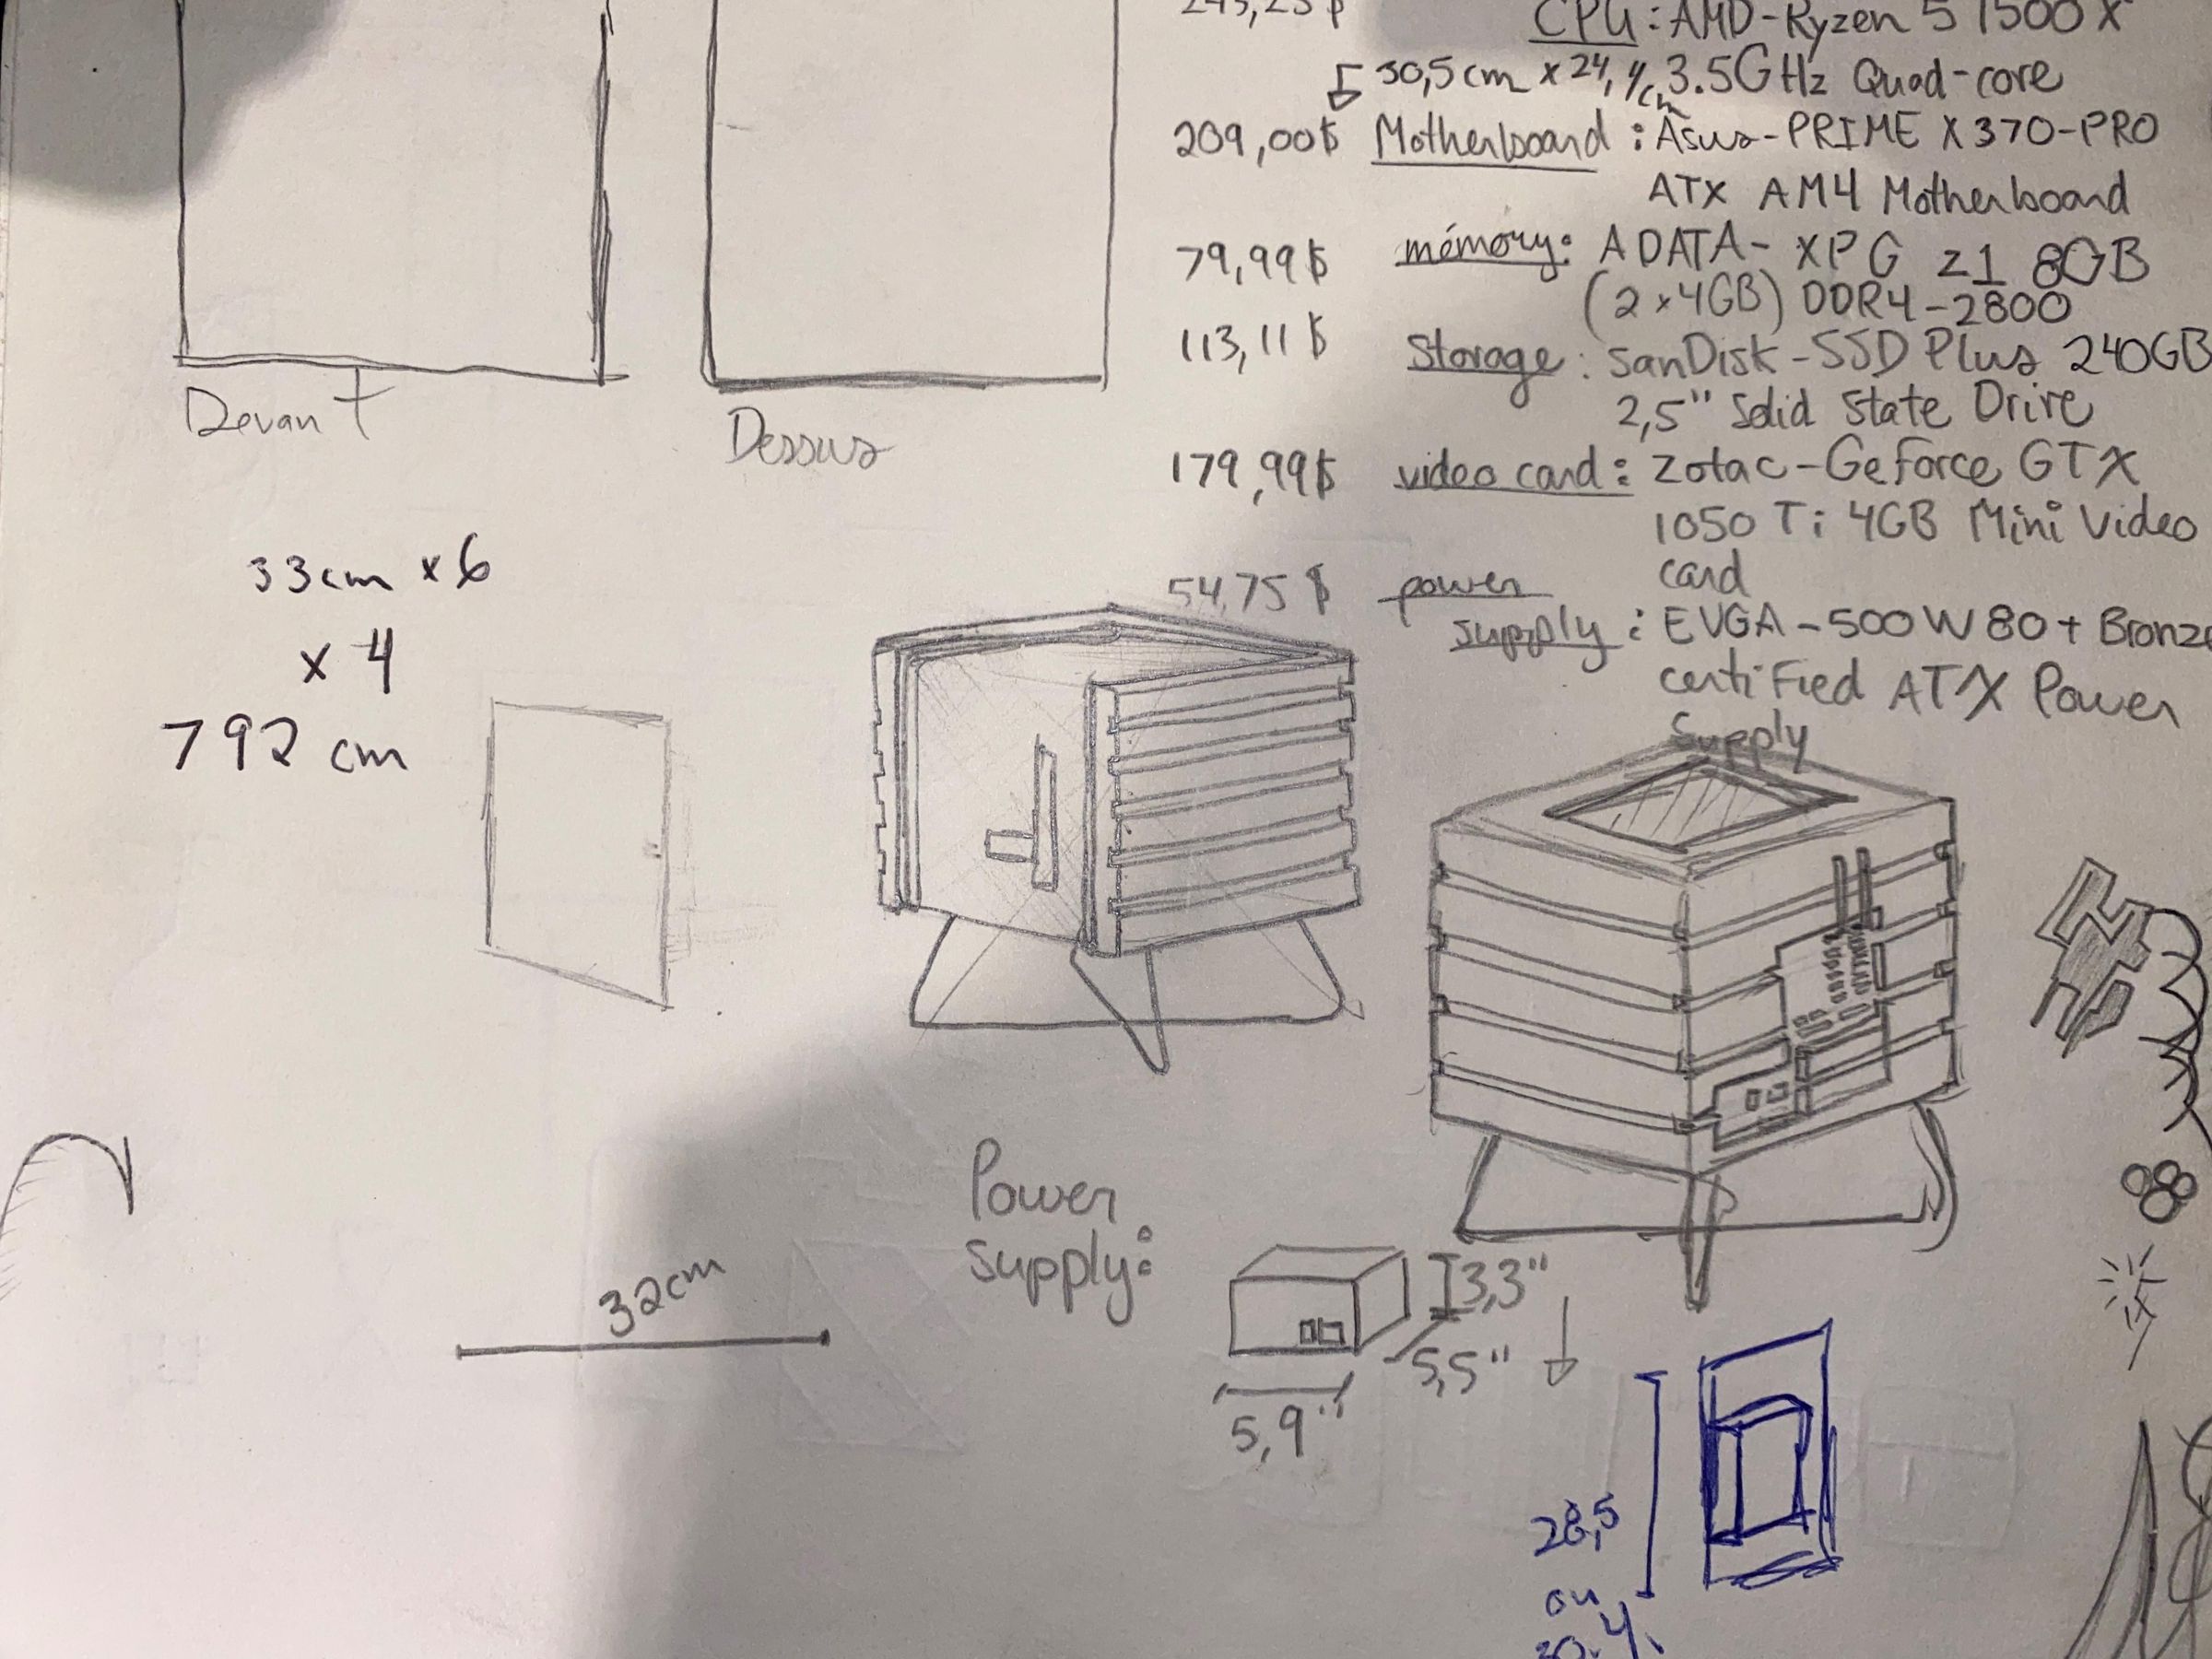 CPU: AMD-Ryzen 5 1500X
30,5cm x 24,4cm 3.5GHz Quad-core
209,00$ Motherboard: Asus-PRIME X370-PRO
ATX AM4 Motherboard
79,99$ mémory: ADATA-XPG Z1 8GB
(2x4GB) DDR4-2800
113,11$ Storage: SanDisk-SSD Plus 240GB
2,5" Solid State Drive
179,99$ video card: Zotac-GeForce GTX
1050 Ti 4GB Mini Video
card
54,75$ power
supply: EVGA-500W 80+ Bronze
certified ATX Power
Supply
Devant
Dessus
33cm x6
x 4
792 cm
32cm
Power
supply:
3,3"
5,5"
5,9"
28,5
ou